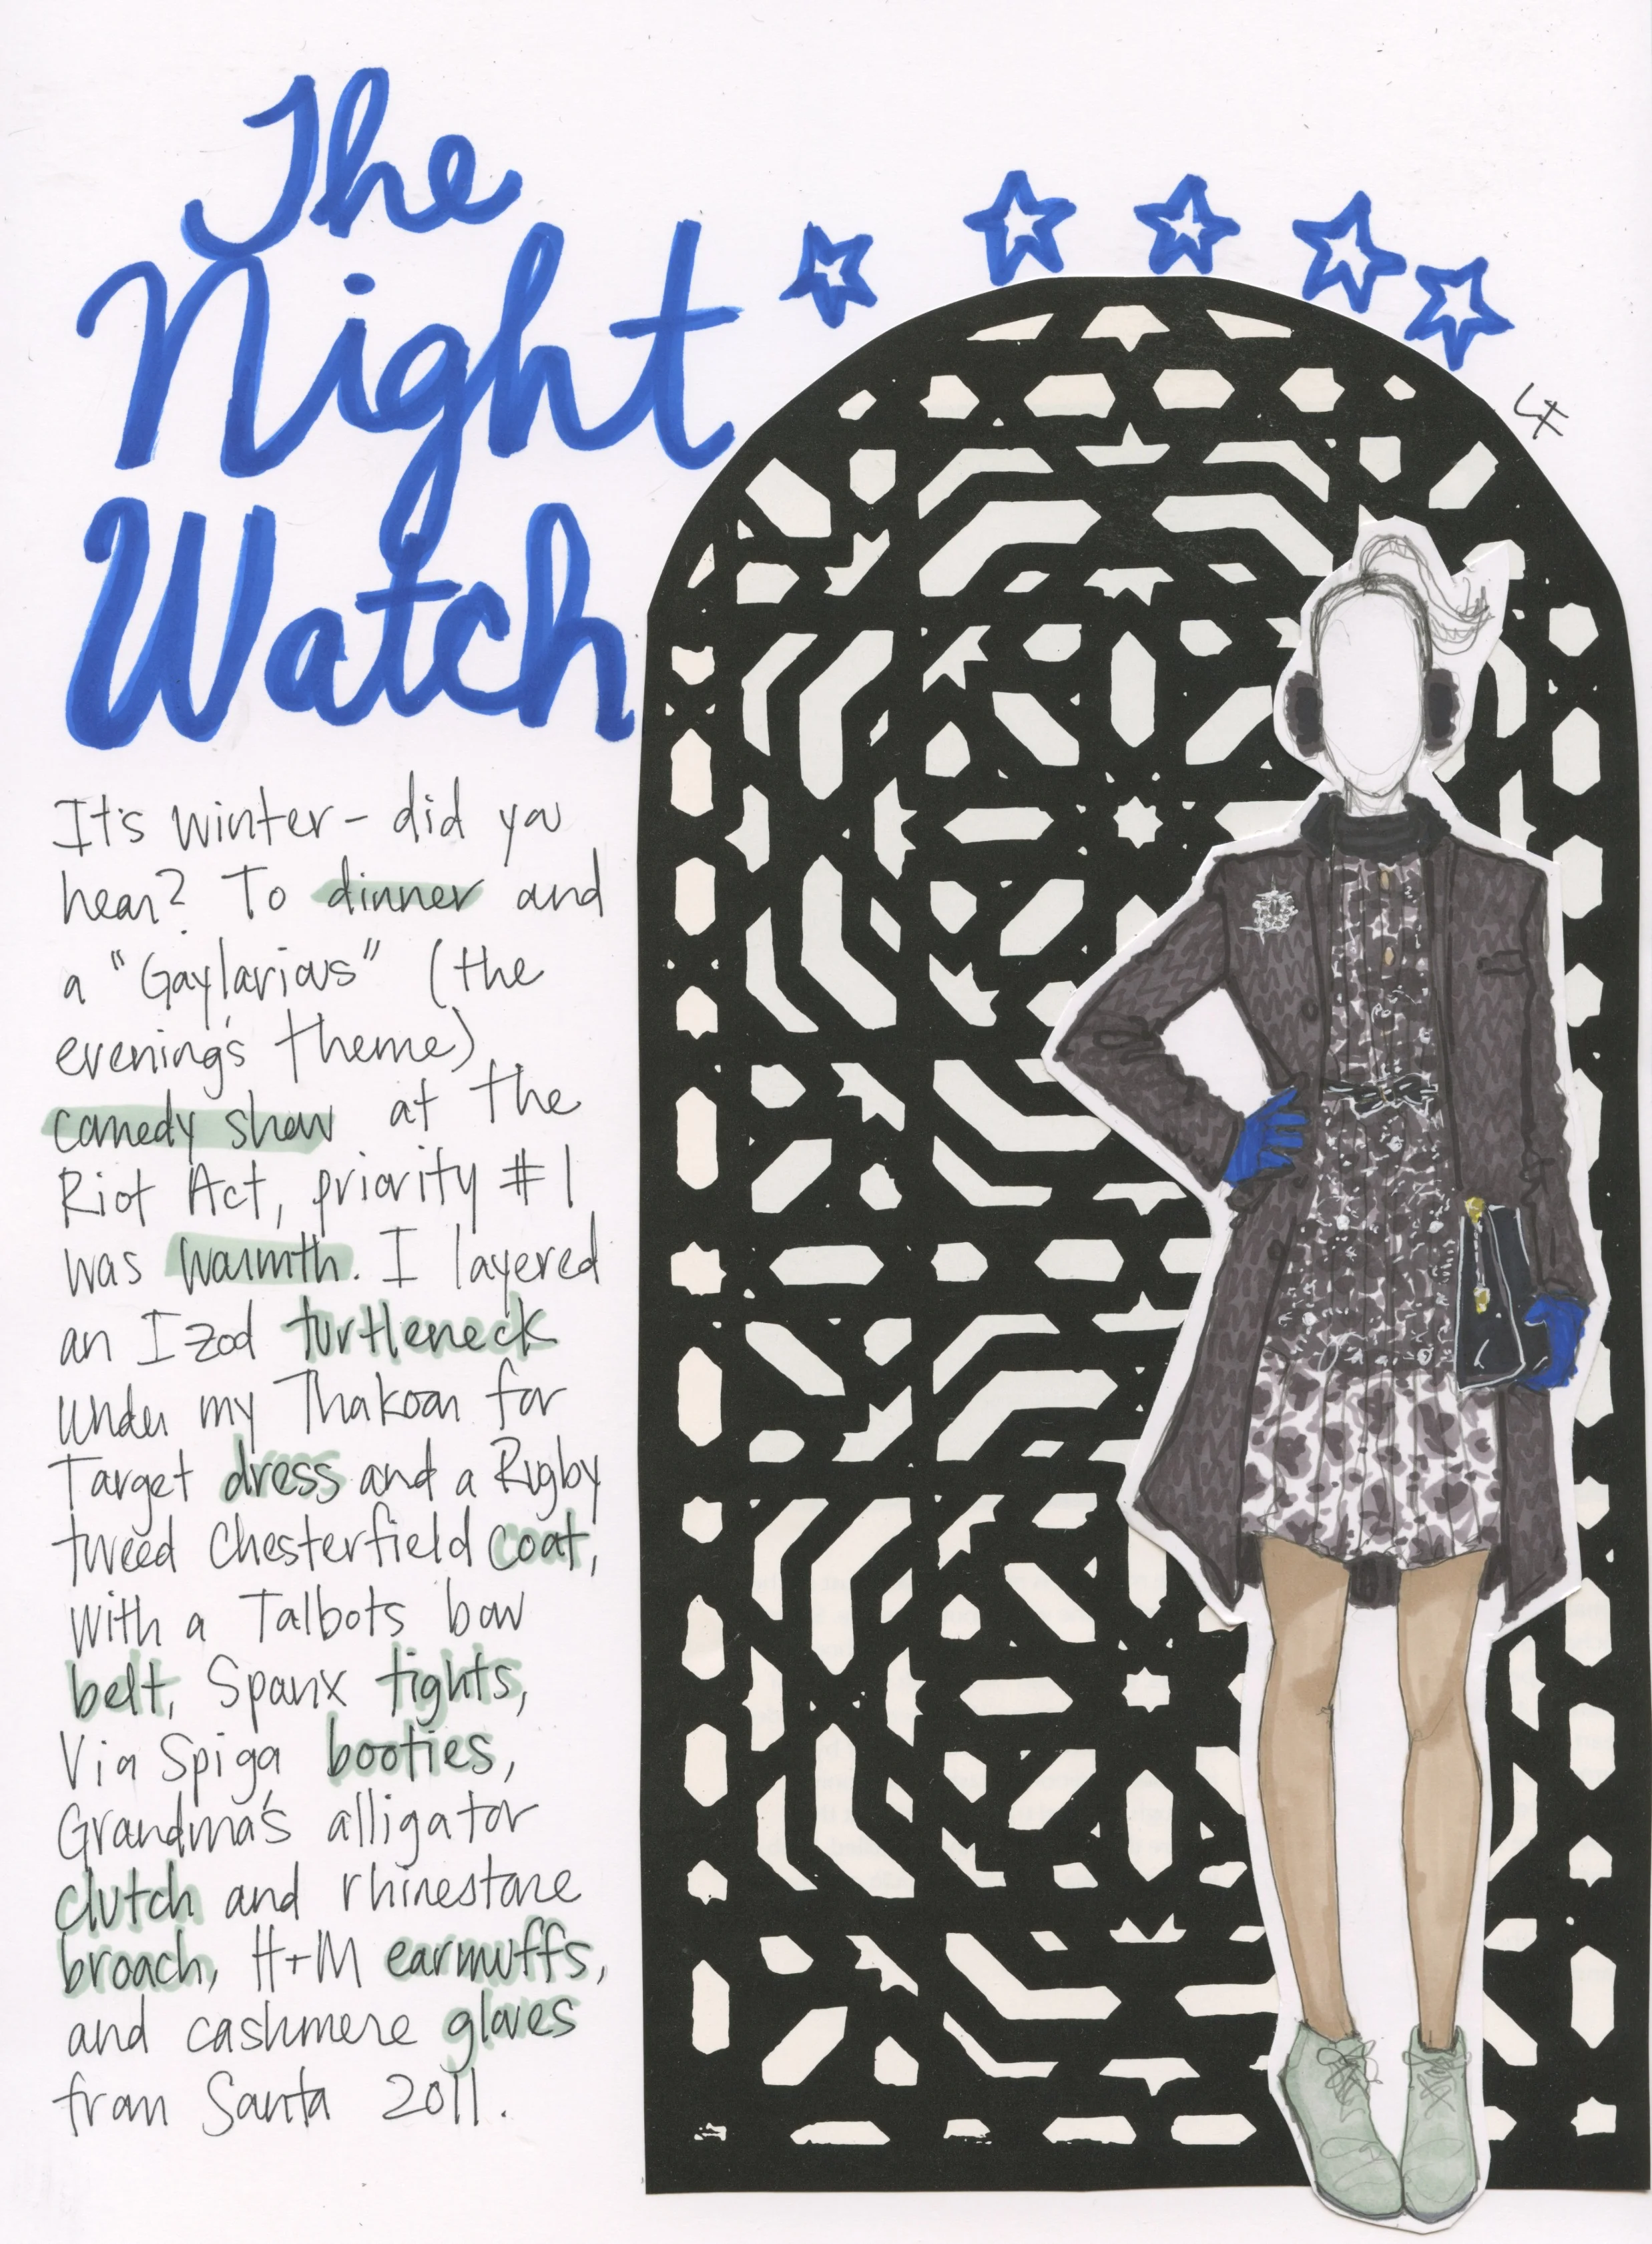 The
Night
Watch
LF
It's winter - did you
hear? To dinner and
a "Gaylarious" (the
evening's theme)
comedy show at the
Riot Act, priority #1
was warmth. I layered
an Izod turtleneck
under my Thakoon for
Target dress and a Rugby
tweed Chesterfield coat,
with a Talbots bow
belt, Spanx tights,
Via Spiga booties,
Grandma's alligator
clutch and rhinestone
broach, H+M earmuffs,
and cashmere gloves
from Santa 2011.